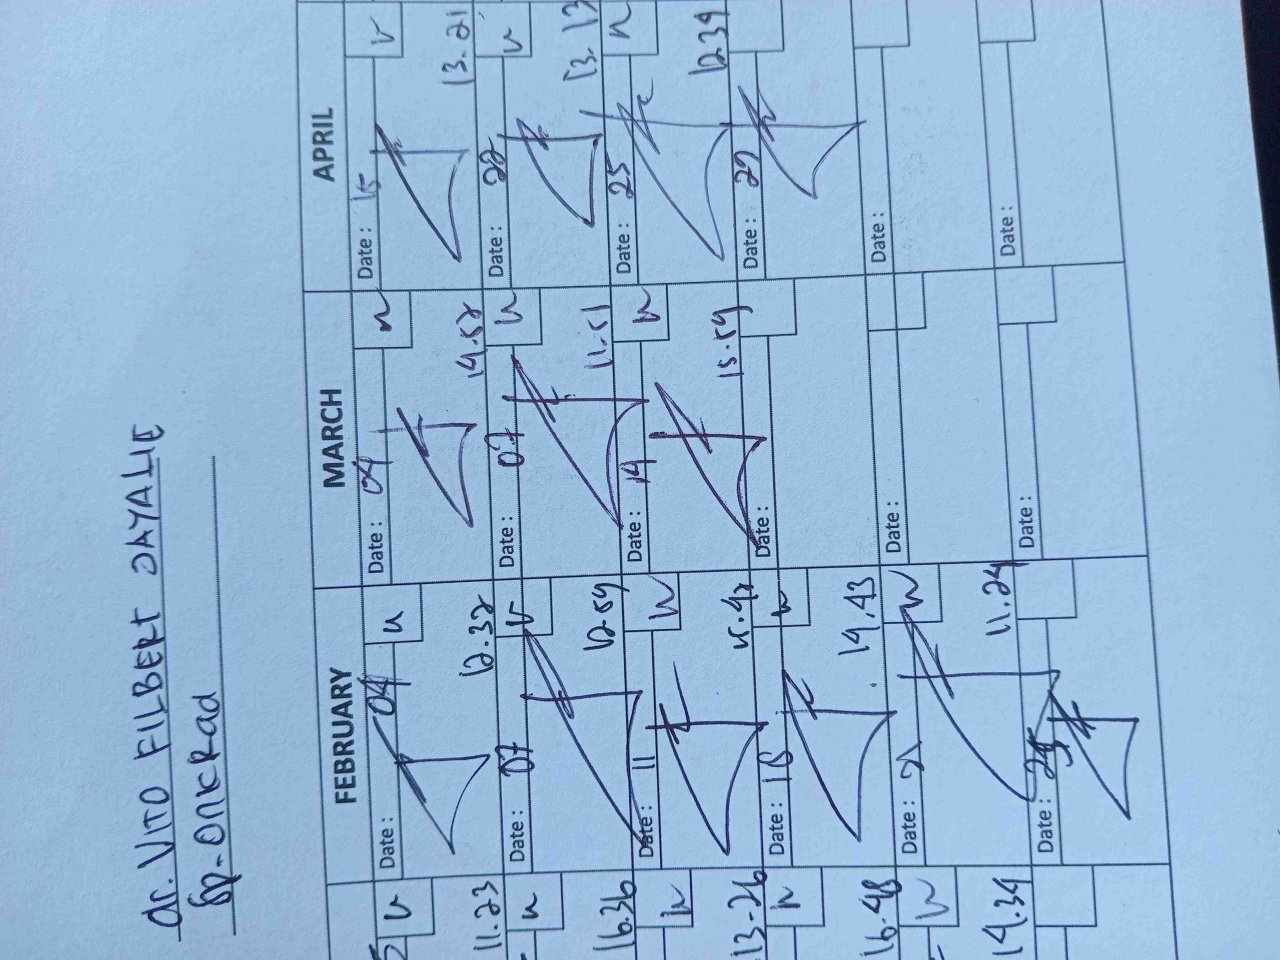 dr. VITO FILBERT JAYALIE
Sp. OnkRad
FEBRUARY
MARCH
APRIL
11.23
Date: 04
12.32
Date: 04
14.52
Date: 15
13.21
16.36
Date: 07
12.59
Date: 07
11.51
Date: 22
13.13
13-26
Date: 11
15.42
Date: 14
15.59
Date: 25
12.39
16.48
Date: 18
14.43
Date:
Date: 29
14.34
Date: 21
11.24
Date:
Date:
Date: 25
Date:
Date: